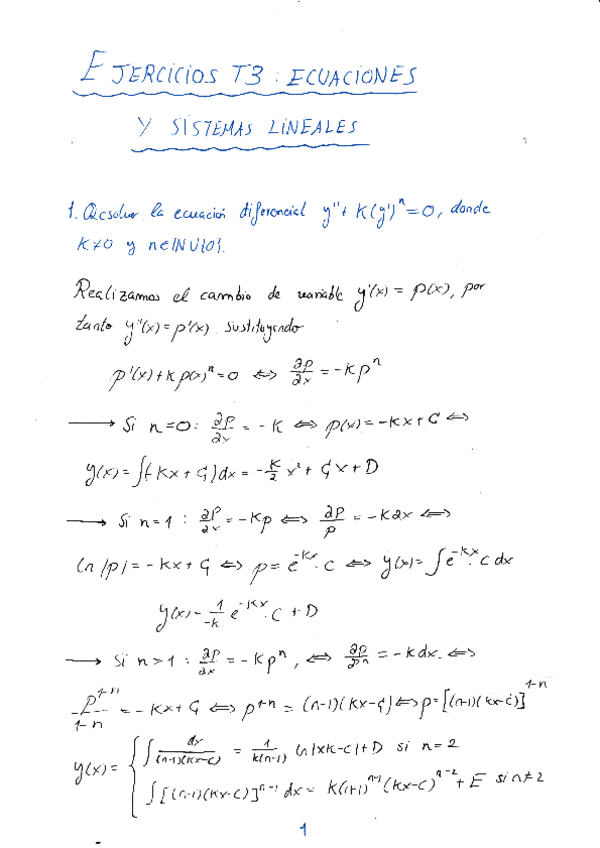 EJERCICIOS T3: ECUACIONES
Y SISTEMAS LINEALES
1. Resolver la ecuación diferencial y''+ K(y')^n=0, donde
K≠0 y n∈ℕ∪{0}.
Realizamos el cambio de variable y'(x) = p(x), por
tanto y''(x)=p'(x). Sustituyendo
p'(x)+k p(x)^n=0 ⇔ ∂p/∂x = -kp^n
→ Si n=0: ∂p/∂x = -K ⇔ p(x)=-Kx+C ⇔
y(x)=∫(-Kx+C)dx = -K/2 x²+Cx+D
→ Si n=1: ∂p/∂x = -Kp ⇔ ∂p/p = -K∂x ⇔
ln|p|=-Kx+C ⇔ p=e^-Kx·C ⇔ y(x)=∫e^-Kx·C dx
y(x)=1/-k e^-Kx·C+D
→ Si n>1: ∂p/∂x = -Kp^n, ⇔ ∂p/p^n = -k dx. ⇔
p^1-n/1-n = -Kx+C ⇔ p^1-n = (n-1)(Kx-C) ⇔ p=[(n-1)(Kx-C)]^1-n
y(x)= { ∫dx/(n-1)(Kx-C) = 1/k(n-1) ln|xK-C|+D si n=2
∫[(n-1)(Kx-C)]^n-1 dx= K(n+1)^n-1 (Kx-C)^n-2+E si n≠2
1